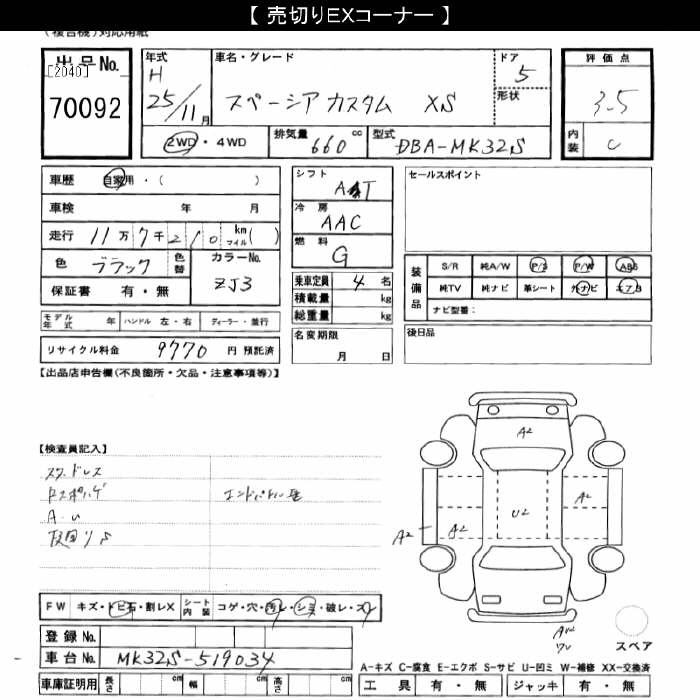 【 売切りEXコーナー 】
(複合機)対応用紙
出品No.
[2040]
70092
年式
H
25/11月
車名・グレード
スペーシア カスタム XS
ドア
5
形状
評価点
3.5
内装
C
2WD・4WD
排気量 660 cc
型式 DBA-MK32S
車歴 自家用・( )
車検 年 月
走行 11万7千210 km マイル( )
色 ブラック 色替
カラーNo. ZJ3
保証書 有・無
シフト
AT
冷房
AAC
燃料
G
乗車定員 4 名
積載量 kg
総重量 kg
名変期限
月 日
セールスポイント
装備品
S/R 純A/W P/S P/W ABS
純TV 純ナビ 革シート 外ナビ エアB
ナビ型番：
後日品
モデル年式 年 ハンドル 左・右 ディーラー・並行
リサイクル料金 9770 円 預託済
【出品店申告欄(不良箇所・欠品・注意事項等)】
【検査員記入】
スタドレス
A・U
A2
A2
A2
A2
U2
FW キズ・トビ石・割レX
シート内装 コゲ・穴・汚レ・シミ・破レ・スレ
登録No.
車台No. MK32S-519034
車庫証明用 長さ cm 幅 cm 高さ cm
スペア
A-キズ C-腐食 E-エクボ S-サビ U-凹ミ W-補修 XX-交換済
工具 有・無 ジャッキ 有・無